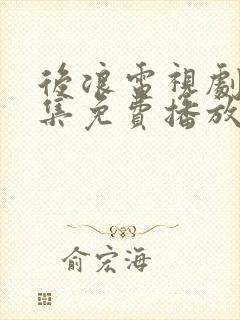 後浪電視劇
集免費播放
俞宏海